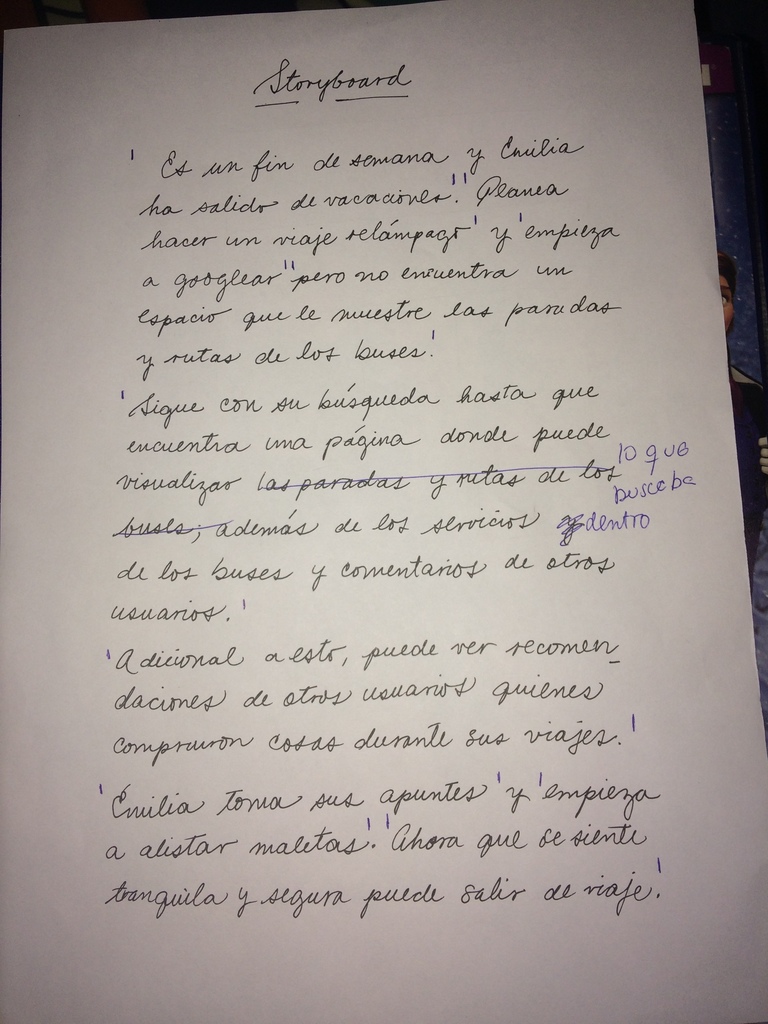 Storyboard
' Es un fin de semana y Emilia
ha salido de vacaciones.' 'Planea
hacer un viaje relámpago' y 'empieza
a googlear' 'pero no encuentra un
espacio que le muestre las paradas
y rutas de los buses.'
'Sigue con su búsqueda hasta que
encuentra una página donde puede
visualizar las paradas y rutas de los lo que
buses; además de los servicios dentro buscaba
de los buses y comentarios de otros
usuarios.'
'Adicional a esto, puede ver recomen-
daciones de otros usuarios quienes
compraron cosas durante sus viajes.'
'Emilia toma sus apuntes' y 'empieza
a alistar maletas.' 'Ahora que se siente
tranquila y segura puede salir de viaje.'